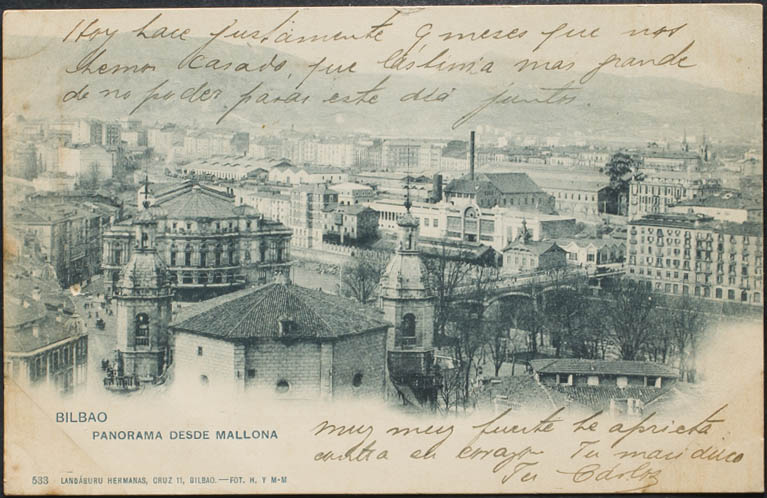 Hoy hace justamente 9 meses que nos
hemos casado, que lastima mas grande
de no poder pasar este dia juntos
BILBAO
PANORAMA DESDE MALLONA
muy muy fuerte te aprieta
contra su corazon Tu maridico
Tu Carlos
533 LANDÁBURU HERMANAS, CRUZ 11, BILBAO.—FOT. H. Y M-M